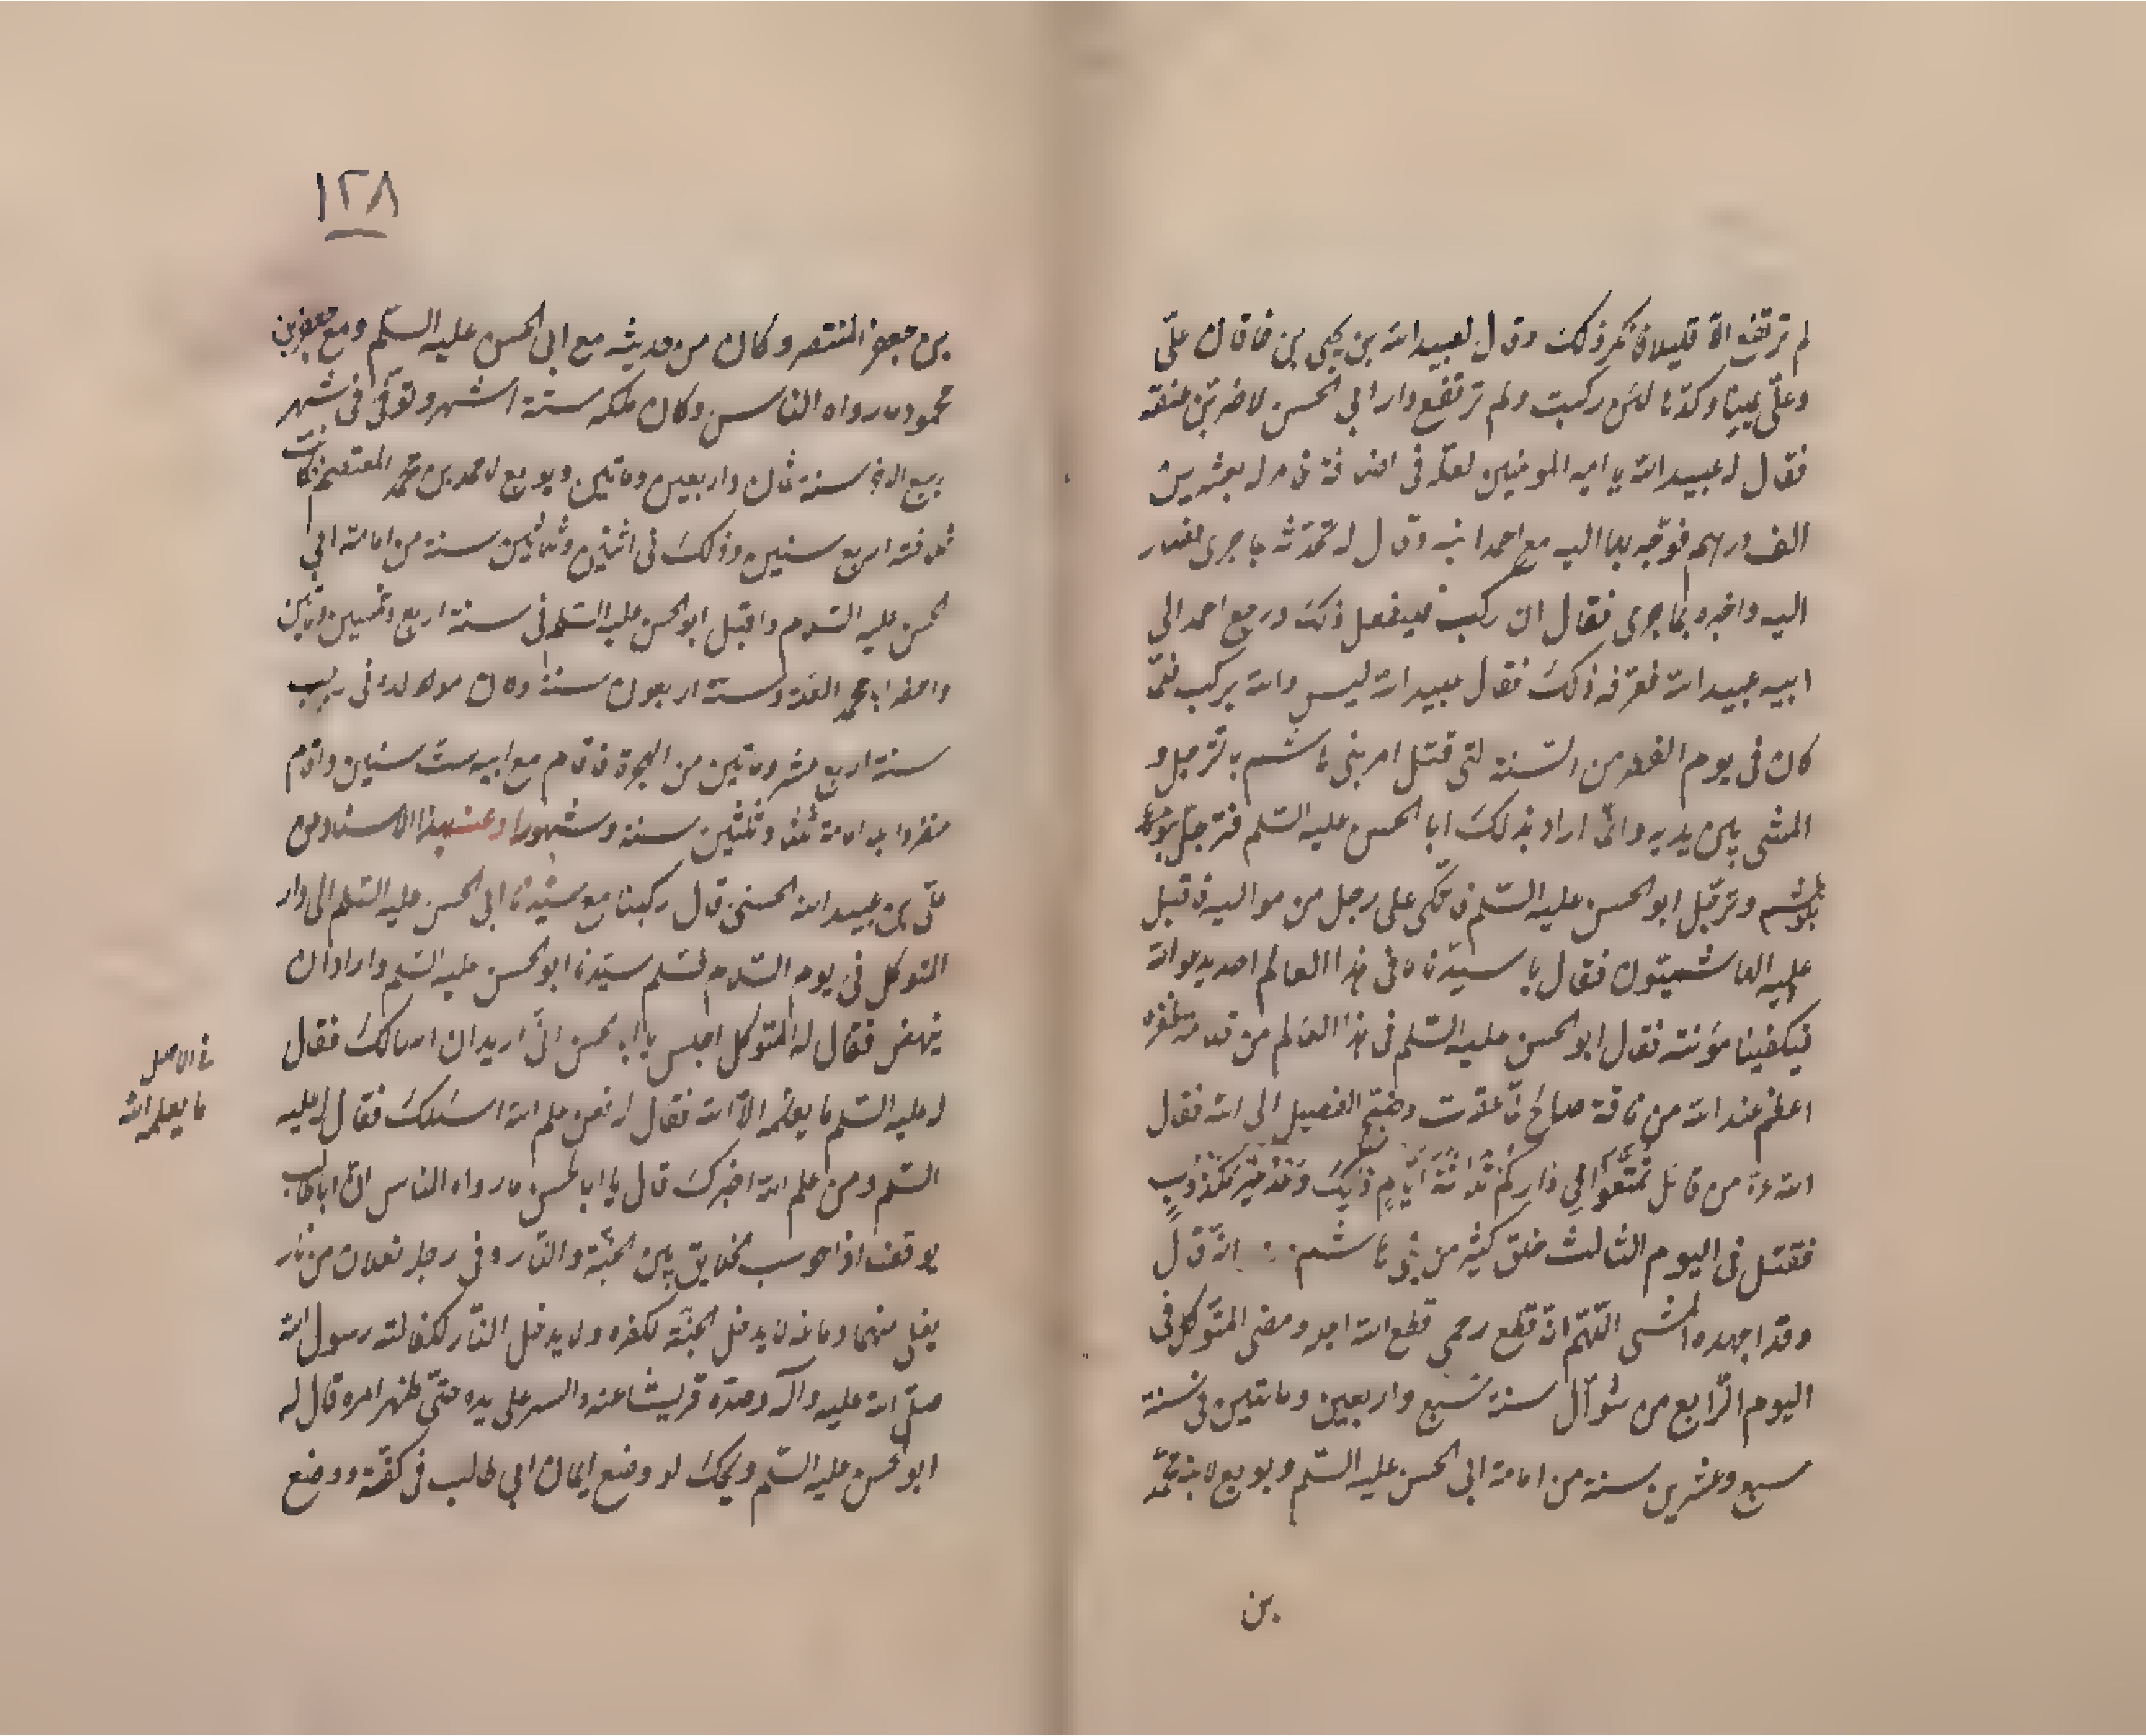 لم ترتفع الا قليلا فانكر ذلك وقال لعبيد الله بن يحيى بن خاقان علّى
وعلّى يمينا وكدّها لئن ركبت ولم ترتفع دار ابي الحسن لاضربن عنقه
فقال له عبيد الله يا امير المومنين لعله في اضاقة فامر له بعشرين
الف درهم فوجّه بها اليه مع احمد ابنه وقال له تحدّثه بما جرى فصار
اليه واخبره بما جرى فقال ان ركب فليفعل ذلك ورجع احمد الى
ابيه عبيد الله فعرّفه ذلك فقال عبيد الله ليس والله يركب فلمّا
كان في يوم الفطر من السّنة التي قتل امر بني هاشم بالترجل و
المشي بين يديه وانّما اراد بذلك ابا الحسن عليه السّلم فترجّل بنو
هاشم وترجّل ابو الحسن عليه السّلم فاتّكى على رجل من مواليه فاقبل
عليه الهاشميّون فقال يا سيّدنا ما في هذا العالم احد يدعوا الله
فيكفينا مؤنته فقال ابو الحسن عليه السّلم في هذا العالم من قلامة ظفره
اعظم عند الله من ناقة صالح لمّا عقرت وضجّ الفصيل الى الله فقال
الله عزّ من قائل تَمَتَّعُوا فِي دَارِكُمْ ثَلَاثَةَ أَيَّامٍ ذَلِكَ وَعْدٌ غَيْرُ مَكْذُوبٍ
فقتل في اليوم الثالث خلق كثير من بني هاشم انّه قال
وقد اجهده المشى اللّهمّ انّه قطع رحمي قطع الله اجله ومضى المتوكل في
اليوم الرّابع من شوّال سنة سبع واربعين ومايتين في سنة
سبع وعشرين سنة من امامة ابي الحسن عليه السّلم وبويع لابنه محمّد
بن
١٢٨
بن جعفر المنتصر وكان من حديثه مع ابي الحسن عليه السّلم ومع جعفر بن
محمود ما رواه الناس وكان ملكه ستة اشهر وتوفّى في شهر
ربيع الاخر سنة ثمان واربعين وماتين وبويع لاحمد بن محمد المعتصم فكانت
خلافته اربع سنين وذلك في اثنين وثلاثين سنة من امامة ابي
الحسن عليه السّلام واعتل ابو الحسن عليه السّلم في سنة اربع وخمسين وماتين
واحضر ابا محمد وستة اربعون سنة وكان مولده في رجب
سنة اربع عشر وماتين من الهجرة فاقام مع ابيه ستّ سنين واقام
منفردا بالامامة ثلث وثلثين سنة وشهورا وعنه بهذا الاسناد عن
علّي بن عبيد الله الحسني قال ركبنا مع سيّدنا ابي الحسن عليه السّلم الى دار
المتوكل في يوم السّلام فسلم سيّدنا ابو الحسن عليه السّلم واراد ان
ينهض فقال له المتوكل اجلس يا ابا الحسن انّي اريد ان اسالك فقال
له عليه السّلم ما يعلمه الّا الله فقال له فمن علم الله اسئلك فقال له عليه
السّلم ومن علم الله اخبرك قال يا ابا الحسن ما رواه الناس انّ ابا طالب
يوقف اذا حوسب الخلايق بين الجنّة والنّار وفي رجله نعلان من نار
يغلى منهما دماغه لا يدخل الجنّة لكفره ولا يدخل النّار لكفالته رسول الله
صلّى الله عليه واله وصدّه قريشا عنه والسر على يده حتّى ظهر امره قال له
ابو الحسن عليه السّلم ويحك لو وضع ايمان ابي طالب في كفّة ووضع
في الاصل
ما يعلمه الله